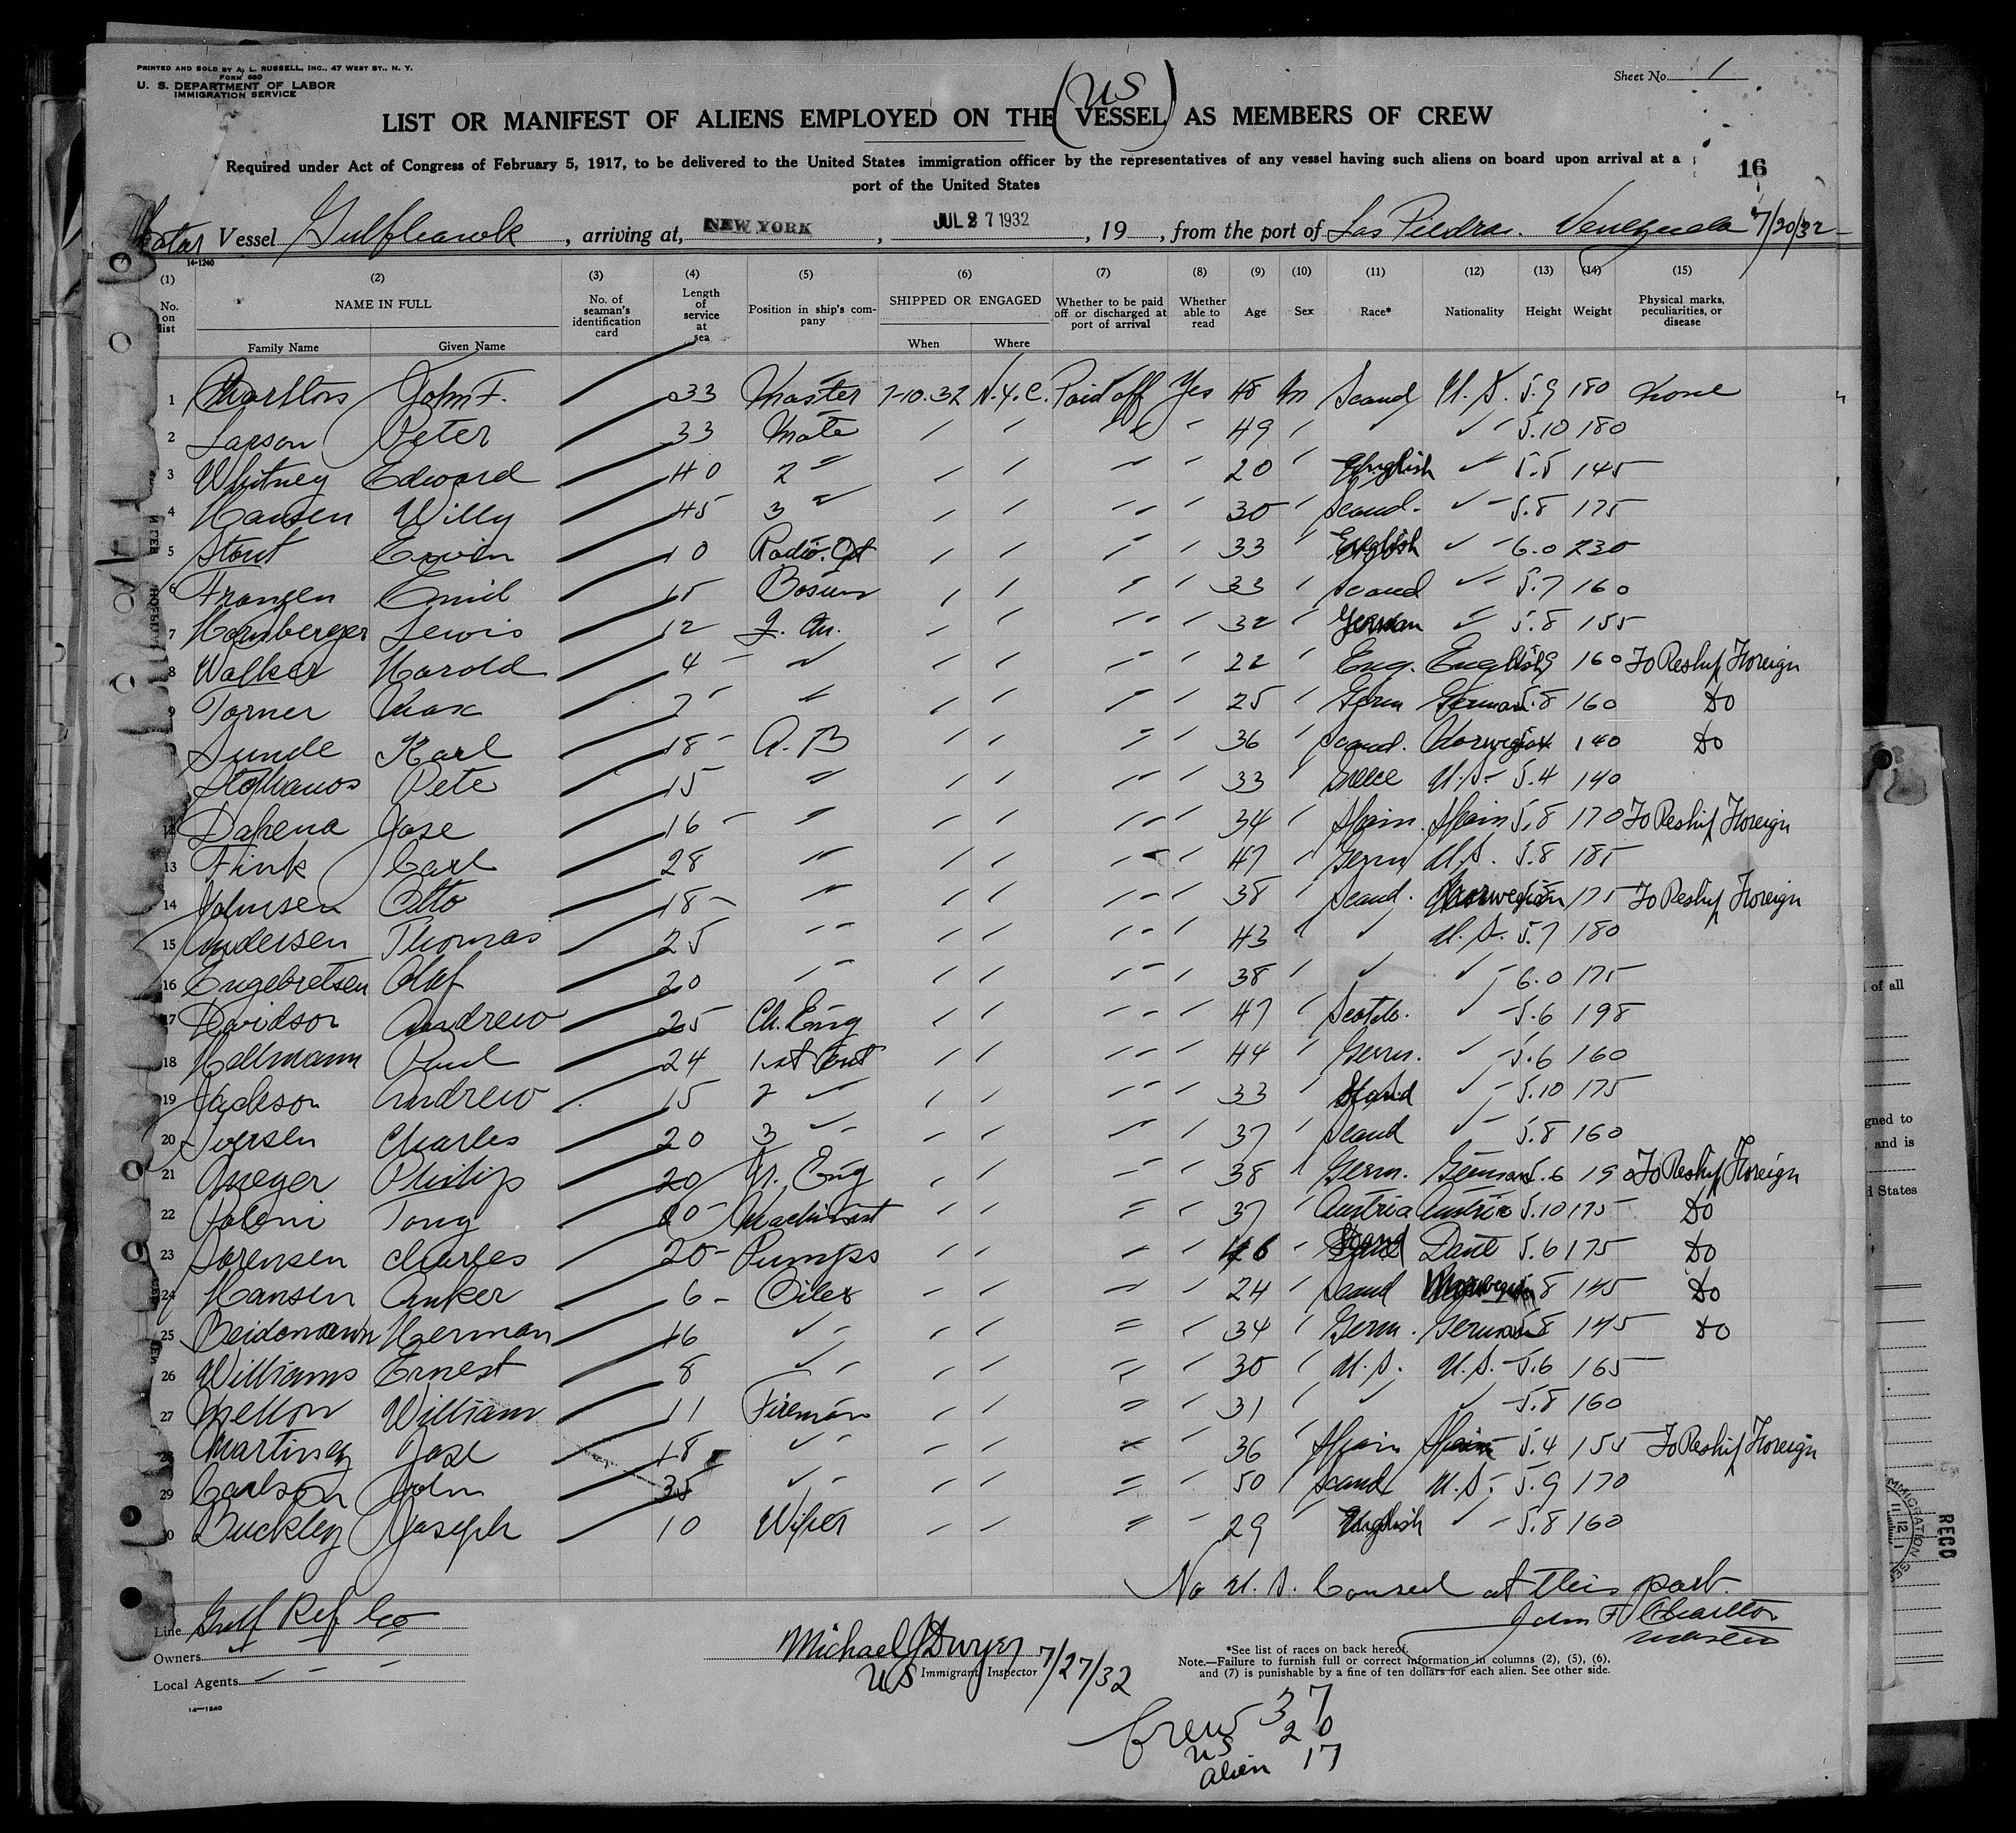 PRINTED AND SOLD BY A. L. RUSSELL, INC., 47 WEST ST., N. Y.
FORM 680
U. S. DEPARTMENT OF LABOR
IMMIGRATION SERVICE
Sheet No. 1
US
LIST OR MANIFEST OF ALIENS EMPLOYED ON THE (VESSEL) AS MEMBERS OF CREW
Required under Act of Congress of February 5, 1917, to be delivered to the United States immigration officer by the representatives of any vessel having such aliens on board upon arrival at a
port of the United States
16
Motor Vessel Gulfhawk, arriving at, NEW YORK, JUL 27 1932, 19, from the port of Las Piedras. Venezuela 7/20/32
14-1240
(1) (2) (3) (4) (5) (6) (7) (8) (9) (10) (11) (12) (13) (14) (15)
No. on list NAME IN FULL No. of seaman's identification card Length of service at sea Position in ship's company SHIPPED OR ENGAGED Whether to be paid off or discharged at port of arrival Whether able to read Age Sex Race* Nationality Height Weight Physical marks, peculiarities, or disease
Family Name Given Name When Where
1 Charlton John F. 33 Master 7-10.32 N.Y.C. Paid off Yes 48 M Scand U.S. 5.9 180 None
2 Larson Peter 33 Mate " " " " 49 " " " 5.10 180
3 Whitney Edward 40 2 " " " " " 20 " English " 5.5 145
4 Hansen Willy 45 3 " " " " " 30 " Scand. " 5.8 175
5 Stout Erwin 10 Radio. Opt " " " " 33 " English " 6.0 230
6 Franzen Emil 15 Bosun " " " " 33 " Scand " 5.7 160
7 Hamberger Lewis 12 Q. M. " " " " 32 " German " 5.8 155
8 Walker Harold 4 " " " " " 22 " Eng. English 5.9 160 To Reship Foreign
9 Torner Max 7 " " " " " 25 " Germ German 5.8 160 Do
Sunde Karl 18 A.B " " " " 36 " Scand. Norwegian 140 Do
Stephanos Pete 15 " " " " " 33 " Greece U.S. 5.4 140
12 Dapena Jose 16 " " " " " 34 " Spain. Spain 5.8 170 To Reship Foreign
13 Fink Carl 28 " " " " " 47 " Germ U.S. 5.8 185
14 Johnsen Otto 18 " " " " " 38 " Scand. Norwegian 175 To Reship Foreign
15 Andersen Thomas 25 " " " " " 43 " " U.S. 5.7 180
16 Engebretsen Olaf 20 " " " " " 38 " " " 6.0 175
17 Davidson Andrew 25 Ch. Eng " " " " 47 " Scotch. " 5.6 198
18 Hellmann Paul 24 1st Asst " " " " 44 " Germ. " 5.6 160
19 Jackson Andrew 15 2 " " " " " 33 " Scand " 5.10 175
20 Iversen Charles 20 3 " " " " " 37 " Scand " 5.8 160
21 Meyer Philip 20 Jr. Eng " " " " 38 " Germ. German 5.6 190 To Reship Foreign
22 Poloni Tony 20 Machinist " " " " 37 " Austria Austria 5.10 175 Do
23 Sorensen Charles 20 Pumps " " " " 46 " Scand Dane 5.6 175 Do
24 Hansen Anker 6 Oiler " " " " 24 " Scand 8 145 Do
25 Beidomann Herman 16 " " " " " 34 " Germ. German 5.8 145 Do
26 Williams Ernest 8 " " " " " 30 " U.S. U.S. 5.6 165
27 Melton William 11 Fireman " " " " 31 " " " 5.8 160
28 Martinez Jose 18 " " " " " 36 Spain Spain 5.4 155 To Reship Foreign
29 Carlson John 35 " " " " " 50 " Scand U.S. 5.9 170
30 Buckley Joseph 10 Wiper " " " " 29 " English " 5.8 160
No U.S. Consul at this port.
John F Charlton
Master
Line Gulf Ref Co
Owners " " "
Local Agents " " "
14-1240
Michael J Dwyer
US Immigrant Inspector 7/27/32
*See list of races on back hereof.
Note.—Failure to furnish full or correct information in columns (2), (5), (6),
and (7) is punishable by a fine of ten dollars for each alien. See other side.
Crew 37
US 20
Alien 17
of all
gned to
and is
d States
IMMIGRATION
RECD